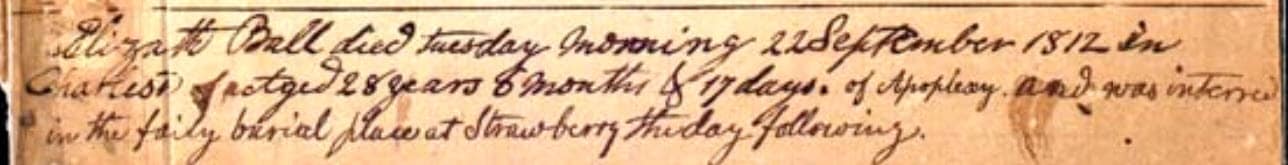 Elizath Ball died tuesday morning 22 September 1812 in
Charleston aged 28 years 8 months & 17 days. of Apoplexy. and was interred
in the faily burial place at Strawberry the day following.